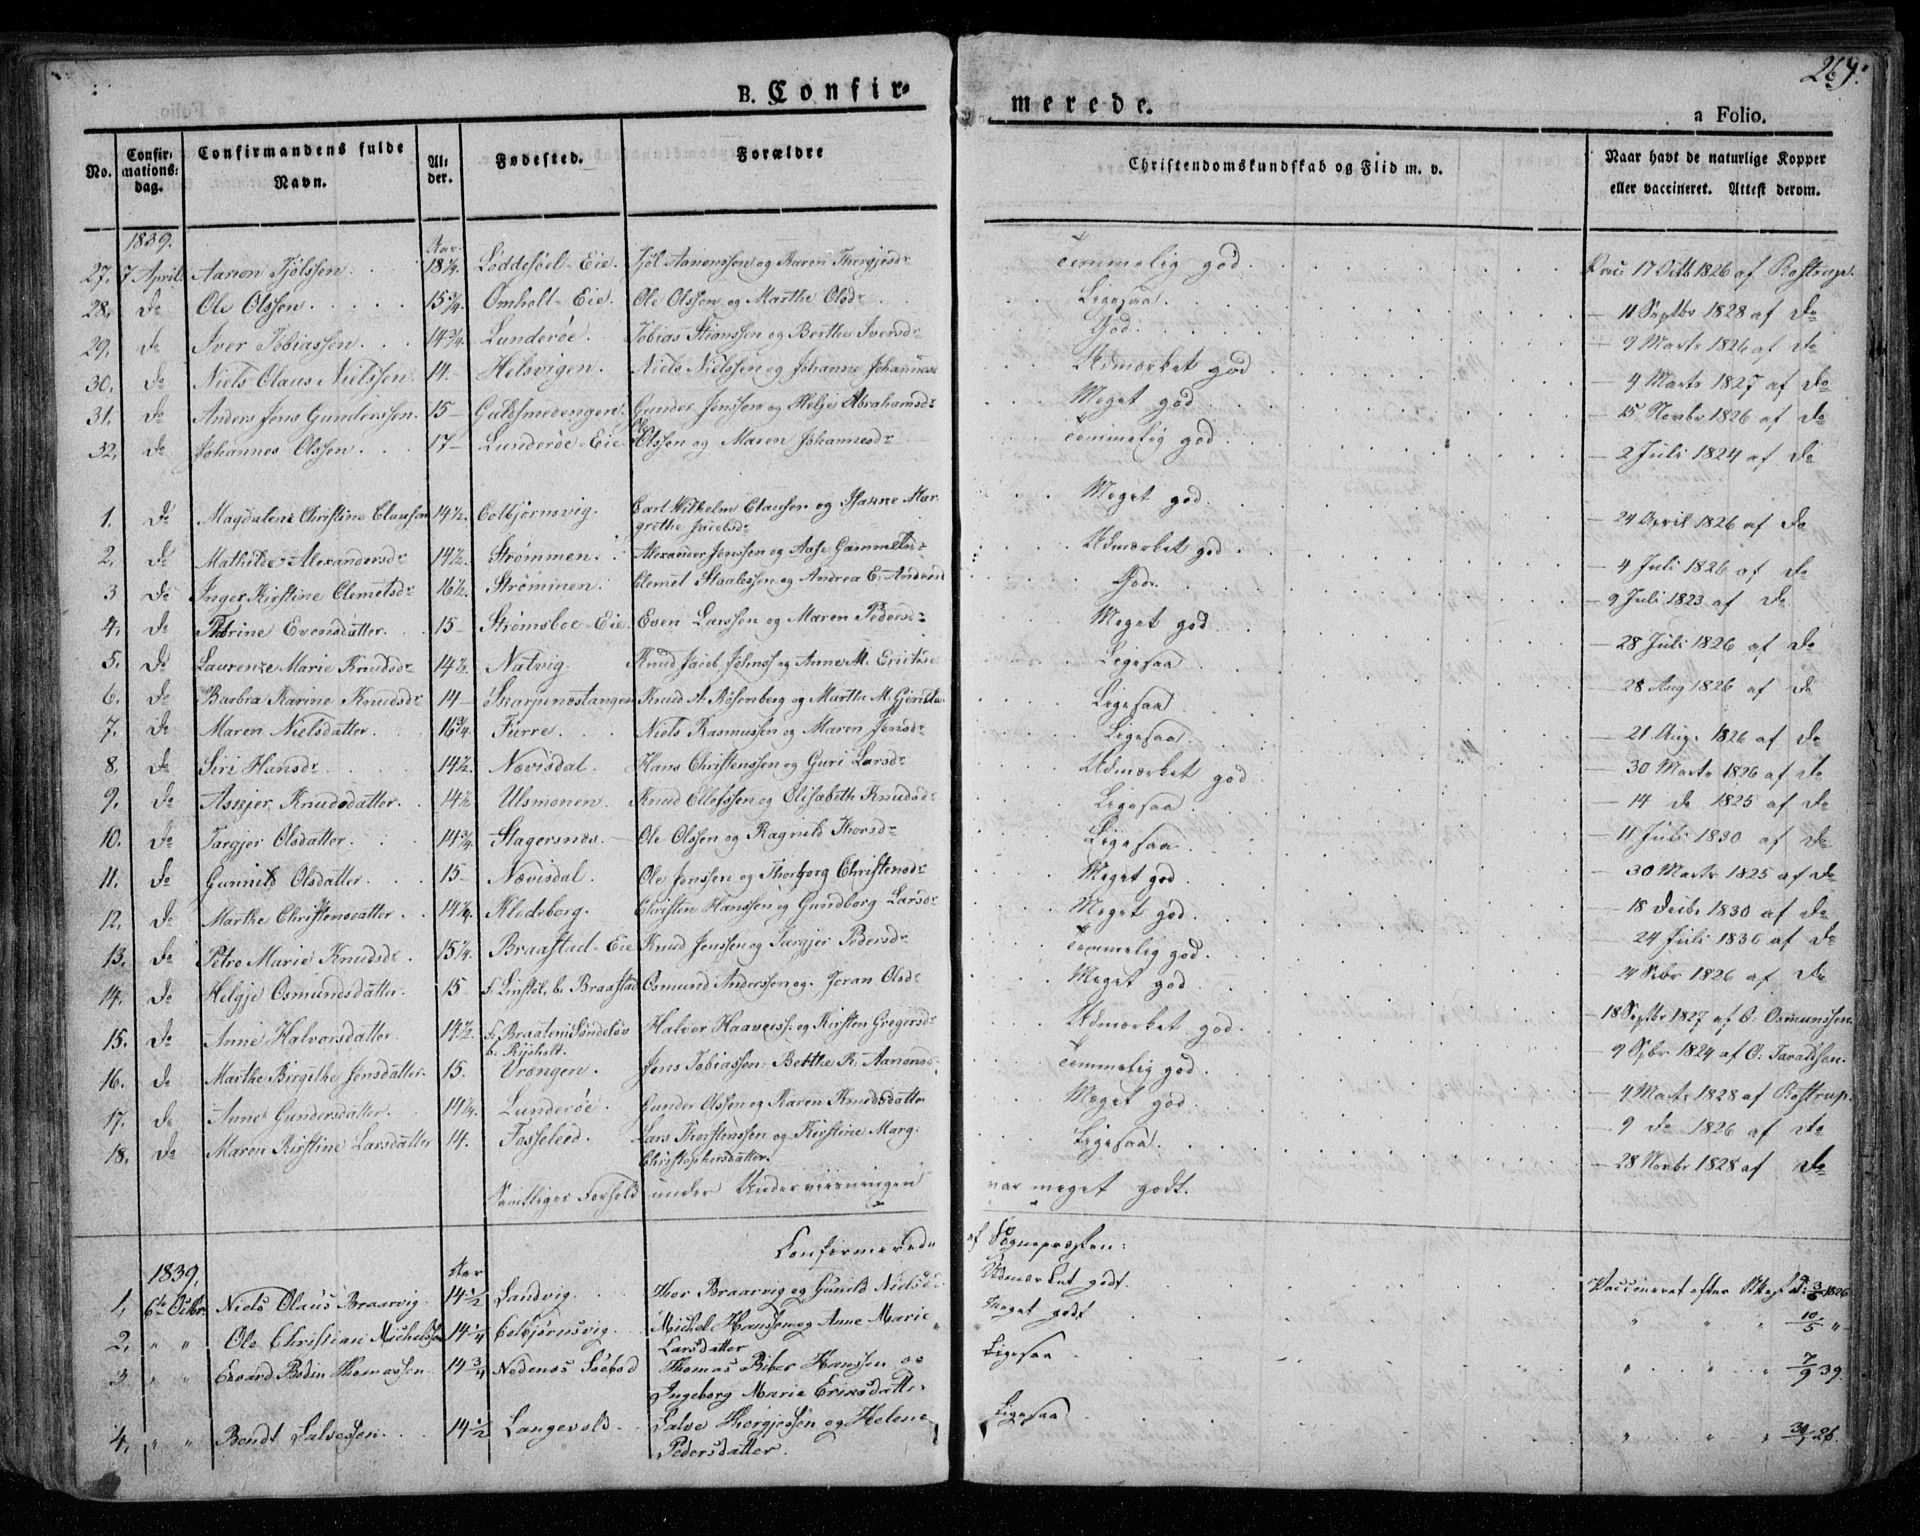 269.
B. Confirmerede.
a Folio.
No. Confirmationsdag. Confirmandens fulde Navn. Alder. Fødested. Forældre Christendomskundskab og Flid m. v. Naar havt de naturlige Kopper eller vaccineret. Attest derom.
1839. Aar
27. 7 April Aanon Tjölssen 18 1/4. Løddesøel-Eie. Tjöl Aanonssen og Karen Thergjesdr Temmelig god. Vacc. 17 Octb 1826 af Rostrup.
28. do Ole Olssen 15 3/4. Omholt-Eie Ole Olssen og Marthe Olsdr Ligesaa. — 11 Septbr 1828 af do
29. do Iver Tobiassen 14 3/4. Lunderøe. Tobias Stianssen og Berthe Iversdr God. — 9 Marts 1826 af do
30. do Niels Olaus Nielssen. 14.— Helsvigen. Niels Nielssen og Johanne Johannesd Udmærket god — 4 Marts 1827 af do
31. do Anders Jens Gunderssen. 15— Guldsmedengen. Gunder Jenssen og Helje Abrahamsdr Meget god — 15 Novbr 1826 af do
32. do Johannes Olssen 17— Lunderøe-Eie Ole Olssen og Maren Johannesdr Temmelig god — 2 Juli 1824 af do
1. do Magdalene Christine Clausen 14 1/2. Colbjørnsvig. Carl Wilhelm Clausen og Hanne Margrethe Jacobsdr Meget god — 24 April 1826 af do
2. do Mathilde Alexandersdr 14 1/2. Strømmen. Alexander Jenssen og Aase Gammelsdr Udmærket god — 4 Juli 1826 af do
3 do Inger Kirstine Clemetsdr 16 1/2. Strømmen. Clemet Staalessen og Andrea E. Andersd God. — 9 Juli 1823 af do
4. do Thrine Evensdatter 15— Strømsboe-Eie. Even Larssen og Maren Pedersdr Meget god — 28 Juli 1826 af do
5. do Laurenze Marie Knudsdr 14 1/2. Natvig. Knud Jacob Johnss og Anne M. Eriksd Ligesaa — 28 Aug 1826 af do
6. do Barbra Karine Knudsdr 14— Skarpnæstangen Knud A. Rosenberg og Marthe M. Ligesaa — 21 Aug. 1826 af do
7. do Maren Nielsdatter 16 3/4. Furre. Niels Rasmussen og Maren Jensdr Ligesaa — 30 Marts 1826 af do
8. do Siri Hansdr 14 1/2. Nævisdal. Hans Christenssen og Guri Larsdr Udmærket god — 14 do 1825 af do
9. do Assjer Knudsdatter 14 1/2 Ulsmonen. Knud Ellefssen og Elisabeth Knudsdr Ligesaa — 11 Juli 1830 af do
10. do Targjer Olsdatter 14 3/4. Stagersnæs. Ole Olssen og Ragnild Thorsdr Ligesaa — 30 Marts 1825 af do
11. do Gunnild Olsdatter 15— Nævisdal. Ole Jenssen og Thorborg Christensdr Meget god — 18 Decbr 1830 af do
12. do Marthe Christensdatter 14 1/4. Klodeborg. Christen Hanssen og Gundborg Larsdr Meget god — 24 Juli 1836 af do
13. do Petro Marie Knudsdr 15 1/4. Braastad-Eie Knud Jenssen og Targjer Pedersdr Temmelig god — 24 1826 af do
14. do Helgje Osmundsdatter 15— f. Linstøl, b. Braastad Osmund Anderssen og Joran Olsdr Meget god — 18 Septbr 1827 af O. Osmundssen.
15. do Anne Halvorsdatter 14 1/2. f. Braaten i Søndeløv b. Rysholt. Halvor Haavorss. og Kirsten Gregersdr Udmærket god — 9 1824 af O. Taraldsen.
16. do Marthe Birgithe Jensdatter 15. Vrængen. Jens Tobiassen. Bertthe K. Aanonsd Temmelig god — 4 Marts 1828 af Rostrup.
17. do Anne Gundersdatter 14 1/4. Lunderøe. Gunder Olssen og Karen Knudsdatter Meget god — 9 do 1826 af do
18. do Maren Kirstine Larsdatter 14. Fasseleed. Lars Thorstenssen og Kirstine Marg. Christophersdatter. Ligesaa — 28 Novbr 1828 af do
Samtliges Forhold under Underviisningen var meget godt.
Confirmerede af Sognepræsten:
1839. Aar
1. 6te Octbr. Niels Olaus Braarvig 14 1/2 Landvig Thor Braarvig og Gunild Nielsdr Udmærket godt. Vaccineret efter Attest d. 3/6 1826
2. " " Ole Christian Michelsen 14 1/4 Colbjørnsvig Michel Hanssen og Anne Marie Larsdatter Meget godt " " " 10/5 "
3 " " Edvard Bodin Thomassen. 14 3/4 Nedenæs Thomas Biber Hanssen og Ingeborg Marie Eriksdatter Ligesaa " " " 7/9 39.
4. " " Bendt Salvesen 14 1/2 Langevold Salve Thorgjessen og Helene Pedersdatter. Ligesaa " " " 30/1 26.